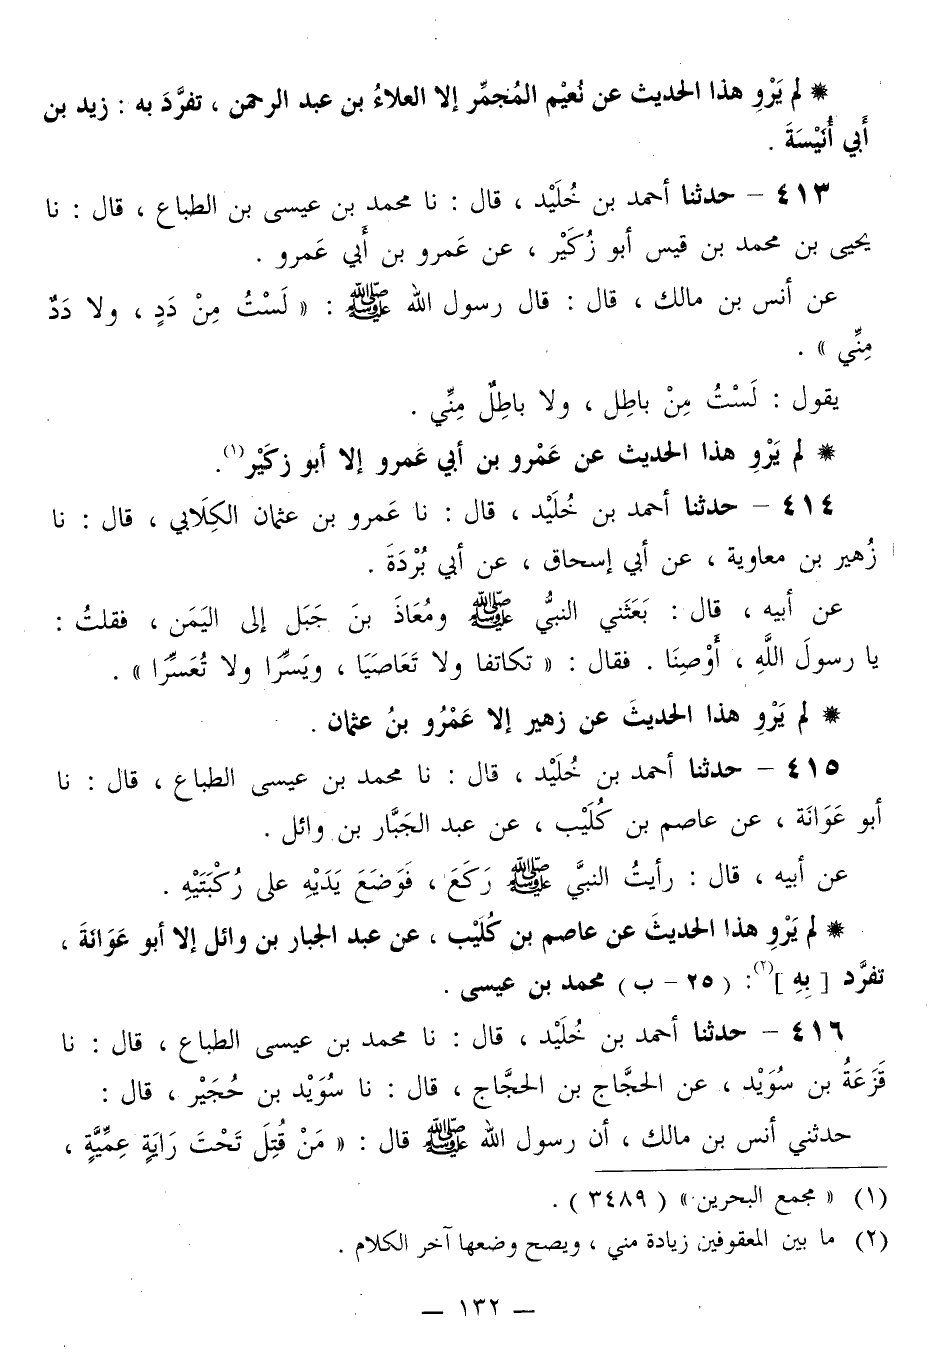 * لم يَرْوِ هذا الحديث عن نُعيْم المُجمِّر إلا العلاءُ بن عبد الرحمن ، تفرَّدَ به : زيد بن
أَبي أُنَيْسَةَ .
٤١٣ – حدثنا أحمد بن خُلَيْد ، قال : نا محمد بن عيسى بن الطباع ، قال : نا
يحيى بن محمد بن قيس أبو زُكَيْر ، عن عَمرو بن أَبي عَمرو .
عن أنس بن مالك ، قال : قال رسول الله ﷺ : « لَسْتُ مِنْ دَدٍ ، ولا دَدٌ
مِنِّي » .
يقول : لَسْتُ مِنْ باطِل ، ولا باطِلٌ مِنِّي .
* لم يَرْوِ هذا الحديث عن عَمْرو بن أبي عَمرو إلا أبو زكَيْر(١).
٤١٤ – حدثنا أحمد بن خُلَيْد ، قال : نا عَمرو بن عثمان الكِلَابي ، قال : نا
زُهير بن معاوية ، عن أبي إسحاق ، عن أبي بُرْدَةَ .
عن أبيه ، قال : بَعَثَني النبيُّ ﷺ ومُعَاذَ بنَ جَبَل إلى اليَمَن ، فقلتُ :
يا رسولَ اللَّهِ ، أَوْصِنَا . فقال : « تكاتفا ولا تَعَاصَيَا ، ويَسِّرًا ولا تُعَسِّرًا » .
* لم يَرْوِ هذا الحديثَ عن زهير إلا عَمْرُو بنُ عثمان .
٤١٥ – حدثنا أحمد بن خُلَيْد ، قال : نا محمد بن عيسى الطباع ، قال : نا
أبو عَوَانَة ، عن عاصم بن كُلَيْب ، عن عبد الجَبَّار بن وائل .
عن أبيه ، قال : رأيتُ النبيَّ ﷺ رَكَعَ ، فَوَضَعَ يَدَيْهِ على رُكْبَتَيْهِ .
* لم يَرْوِ هذا الحديثَ عن عاصم بن كُلَيْب ، عن عبد الجبار بن وائل إلا أبو عَوَانَةَ ،
تفرَّد [ بِهِ ](٢): ( ٢٥ – ب ) محمد بن عيسى .
٤١٦ – حدثنا أحمد بن خُلَيْد ، قال : نا محمد بن عيسى الطباع ، قال : نا
قَزَعَةُ بن سُوَيْد ، عن الحجَّاج بن الحجَّاج ، قال : نا سُوَيْد بن حُجَيْر ، قال :
حدثني أنس بن مالك ، أن رسول الله ﷺ قال : « مَنْ قُتِلَ تَحْتَ رَايَةٍ عِمِّيَّةٍ ،
(١) « مجمع البحرين » ( ٣٤٨٩ ) .
(٢) ما بين المعقوفين زيادة مني ، ويصح وضعها آخر الكلام .
— ١٣٢ —